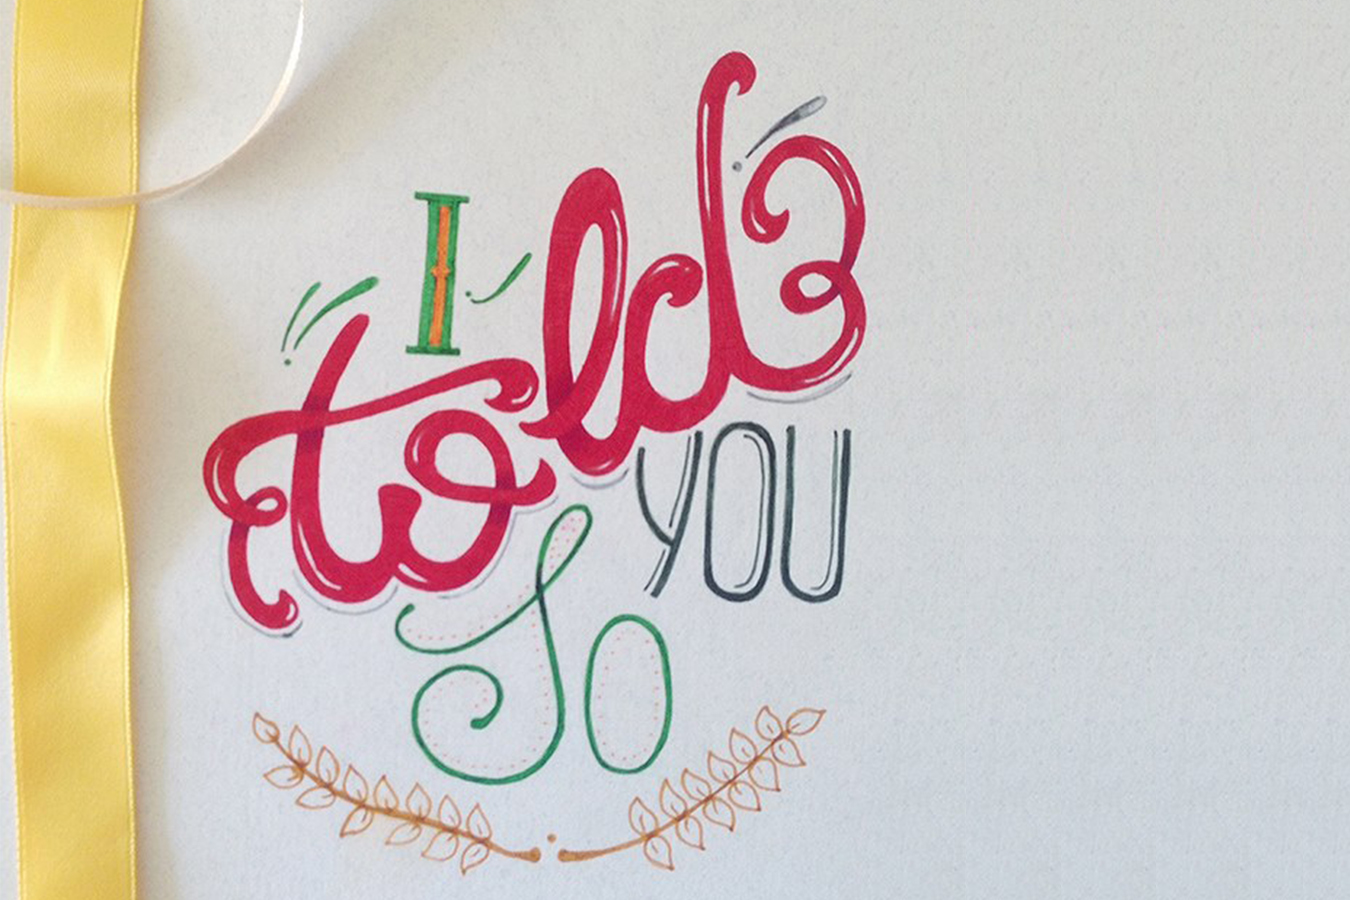 I
told
YOU
So